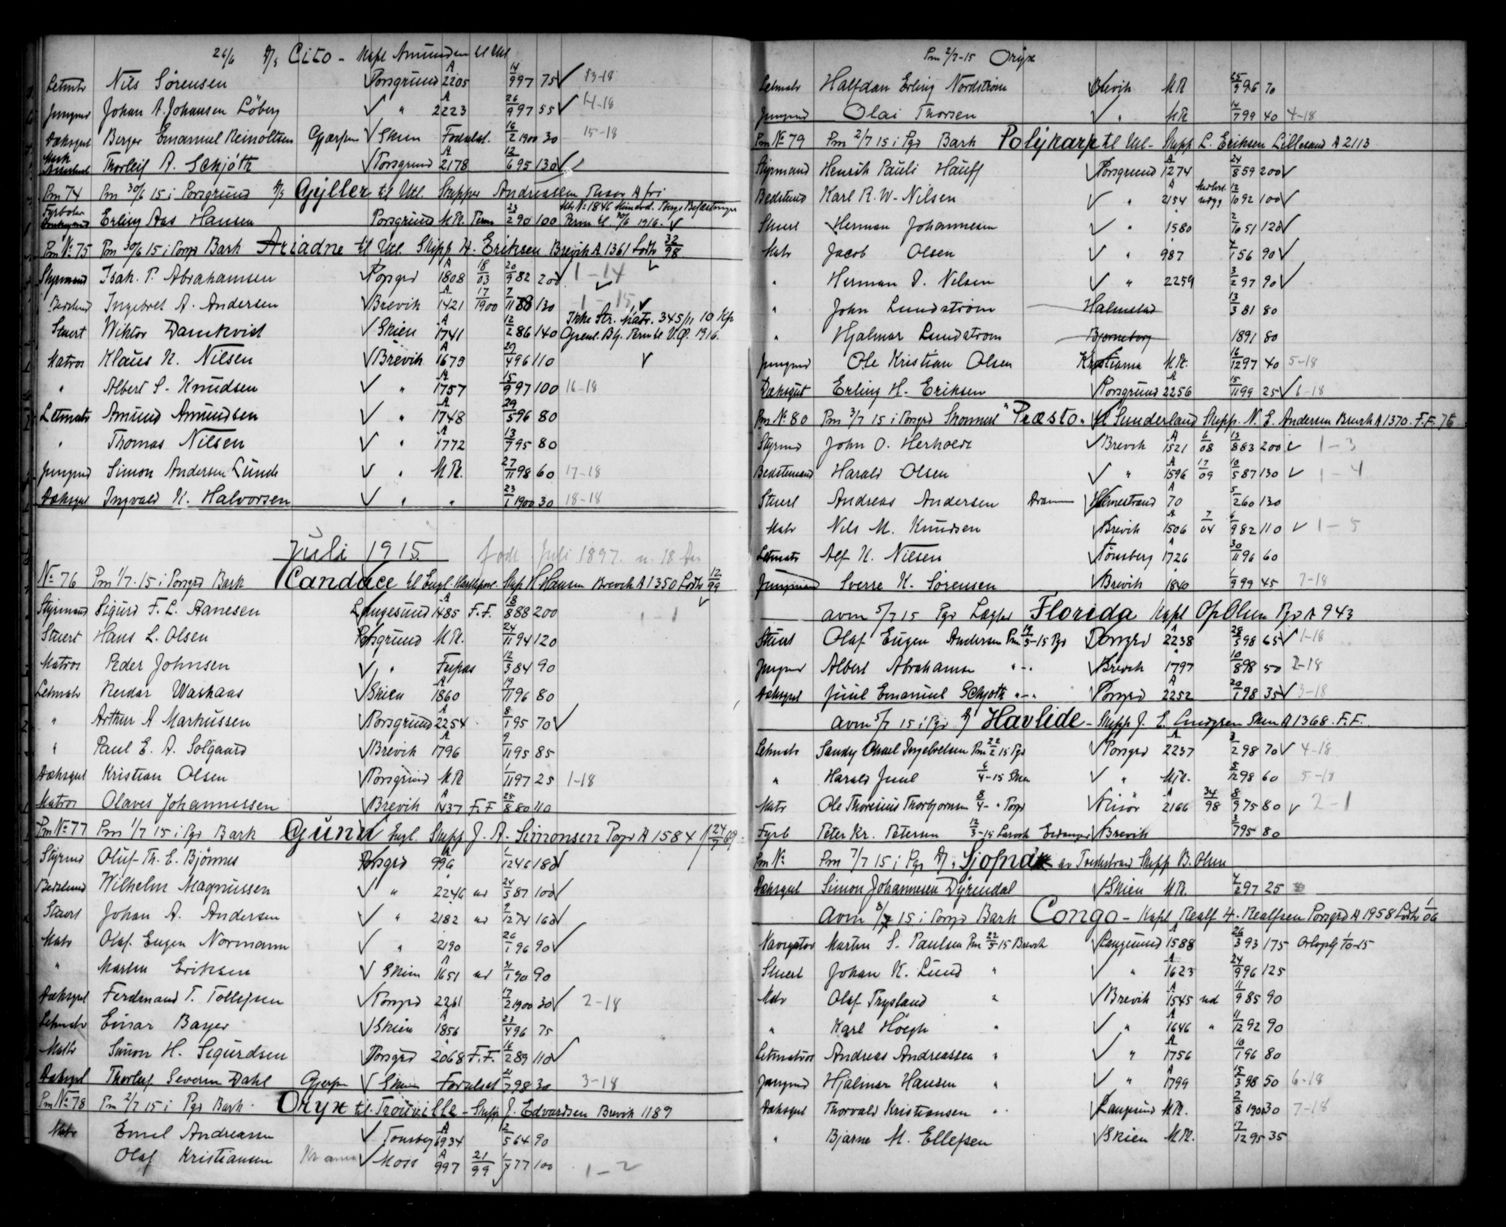 26/6 Cito - Kapt Amundsen til Utl
Letmatr Nils Sørensen Porsgrund A 2205 14/9 97 75 13-18
Jungmd Johan A. Johansen Löberg " A 2223 26/9 97 55 14-18
Dæksgut Berger Emanuel Reinoltsen Gjerpen Skien Foralst. 16/2 1900 30 15-18
Thorleif A. Schjöth Porsgrund A 2178 12/6 95 130
Pm 74 Pm 30/6 15 i Porsgrund Gyller til Utl. Skipper Andreassen
Erling Aas Hansen Porsgrund M.R. 23/2 90 100
Pm No 75 Pm 30/6 15 i Porsgr Bark Ariadne til Utl. Skipp H. Eriksen Brevik A 1361 32/98
Styrmand Isak. P. Abrahamsen Porsgrd A 1808 18/03 20/9 82 200 1-14
Bedstmd Ingebret A. Andersen Brevik A 1421 17/1900 7/11 88 130 1-15
Stuert Wiktor Damkvist Skien A 1741 12/2 86 140
Matros Klaus N. Nilsen Brevik A 1679 29/4 96 110
" Albert S. Knudsen " A 1757 15/9 97 100 16-18
Letmatr Amund Amundsen " A 1748 29/5 96 80
" Thomas Nilsen " A 1772 13/9 95 80
Jungmd Simon Andersen Lunde " M.R. 27/11 98 60 17-18
Dæksgut Ingvald N. Halvorsen " " 23/1 1900 30 18-18
Juli 1915 født Juli 1897
No 76 Pm 1/7-15 i Porsgrd Bark Candace til Engl. Skip K Hansen Brevik A 1350 12/99
Styrmand Sigurd F. L. Aanesen Langesund A 1485 F.F. 18/8 88 200 1-1
Stuert Hans L. Olsen Porsgrund M.R. 24/11 94 120
Matros Peder Johnsen " 12/3 84 90
Letmatr Reidar Waskaas Skien A 1860 19/11 96 80
" Arthur A Markussen Porsgrund A 2254 8/1 95 70
" Paul E. A. Solgaard Brevik A 1796 9/11 95 85
Dæksgut Kristian Olsen Porsgrund M.R. 1/11 97 25 1-18
Matros Olaves Johannessen Brevik A 1437 F.F 25/8 80 110
Pm No 77 Pm 1/7 15 i Pgr Bark Gunn Engl. Skipp J. A. Simonsen Porsgr A 1584
Styrmd Oluf Th. E. Bjönnes Porsgrd A 996 1/12 46 180
Bedstmd Wilhelm Magnussen " 2246 24/3 87 100
Stuert Johan A. Andersen " 2182 7/12 74 160
Matr Olaf. Eugen Normann " 2190 26/1 96 90
" Martin Eriksen Skien A 1651 90 90
Dæksgut Ferdinand T. Tollefsen Porsgrd 2261 17/2 1900 30 2-18
Letmatr Einar Bayer Skien A 1856 23/4 96 75
Matr Simon H. Sigurdsen Porsgrd 2068 F.F. 16/2 89 110
Dæksgut Thorleif Severin Dahl Gjerpen Skien Foralst 21/7 98 30 3-18
Pm No 78 Pm 2/7 15 i Pgr Bark. Oryx til Trouville - Skipp J. Edvardsen Brevik 1189
Matr Emil Andreasen Tønsberg A 6934 2/5 64 90
Olaf Kristiansen Moss A 997 21/99 1/7 77 100 1-2
Pm 2/7-15 Oryx
Letmatr Halfdan Erling Nordstrøm M.R. 25/9 96 70
Jungmd Olai Thorsen " M.R. 14/7 99 40 4-18
Pm No 79 Pm 2/7 15 i Pgr Bark Polykarp til Utl - Skipp L. Eriksen Lillesand A 2113
Styrmand Henrik Pauli Hauff Porsgrund A 1274 24/8 59 200
Bedstmd Karl R. W. Nilsen " A 2154 12/10 92 100
Stuert Herman Johannesen " A 1580 2/10 51 120
Matr Jacob Olsen " A 987 7/1 56 90
" Herman D. Nilsen " A 2259 3/2 97 90
" John Lundström Halmstad 13/3 81 80
" Hjalmar Lundström Bjørneborg 1891 80
Jungmd Ole Kristian Olsen Kristiania M.R. 16/12 97 40 5-18
Dæksgut Erling H. Eriksen Porsgrund A 2256 15/11 99 25 6-18
Pm No 80 Pm 3/7 15 i Porsgr Skonnert "Præsto" til Sunderland Skipp. N. E. Andersen Brevik A 1370. F.F. 75
Styrmd John O. Herholdt Brevik A 1521 6/08 13/8 83 200 1-3
Bedstemand Harald Olsen " A 1596 17/09 10/5 87 130 1-4
Stuert Andreas Andersen Holmestrand A 70 5/2 60 130
Matr Nils M. Knudsen Brevik A 1506 7/04 6/9 82 110 1-5
Letmatr Alf N. Nilsen Tønsberg A 1726 30/11 96 60
Jungmand Sverre N. Sørensen Brevik A 1840 1/9 99 45 7-18
avm 5/7 15 Pgr Florida Kapt Op Olsen Pgr A 943
Stuert Olaf Eugen Andersen Pm 19/5-15 Pgr Porsgrd A 2238 28/3 98 65 1-18
Jungmd Albert Abrahamsen "-" Brevik A 1797 10/8 98 50 2-18
Dæksgut Juul Emanuel Schjøth "-" Porsgrd A 2252 20/7 98 35 3-18
avm 5/7 15 i Pgr Havlide - Skipp J. E. Lundgren Skien A 1368. F.F.
Letmatr Sandy Chael Ingebretsen Pm 22/2 15 Pgr Porsgrd A 2237 3/2 98 70 4-18
" Harald Juul 6/4-15 Skien " M.R. 5/12 98 60 5-18
Matr Ole Thoresius Thorbjørnsen 8/4- " Porsgr Risör A 2166 34/98 8/9 75 80 2-1
Fyrb Peter Kr. Petersen 12/3-15 Larvik Brevik 3/7 95 80
Pm No Pm 7/7 15 i Pgr Sjofna av Tvedestrand Skipp B. Olsen
Dæksgut Simon Johannesen Dyrendal Skien M.R. 4/2 97 25
avm 8/7 15 i Porsgrd Bark Congo - Kapt Realf H. Realfsen Porsgrd A 1958 1/06
Navigatør Martin S. Paulsen Pm 22/5-15 Brevik Langesund A 1588 26/3 93 175
Stuert Johan K. Lund " " A 1623 24/9 96 125
Matr Olaf Trysland " Brevik A 1545 ud 11/9 85 90
" Karl Höegh " " A 1646 " 11/12 92 90
Letmatros Andreas Andreassen " " A 1756 10/1 96 80
Jungmd Hjalmar Hansen " " A 1799 15/3 98 50 6-18
Dæksgut Thorvald Kristiansen " Langesund M.R. 2/8 1900 30 7-18
" Bjarne M. Ellefsen Skien M.R. 17/12 95 35